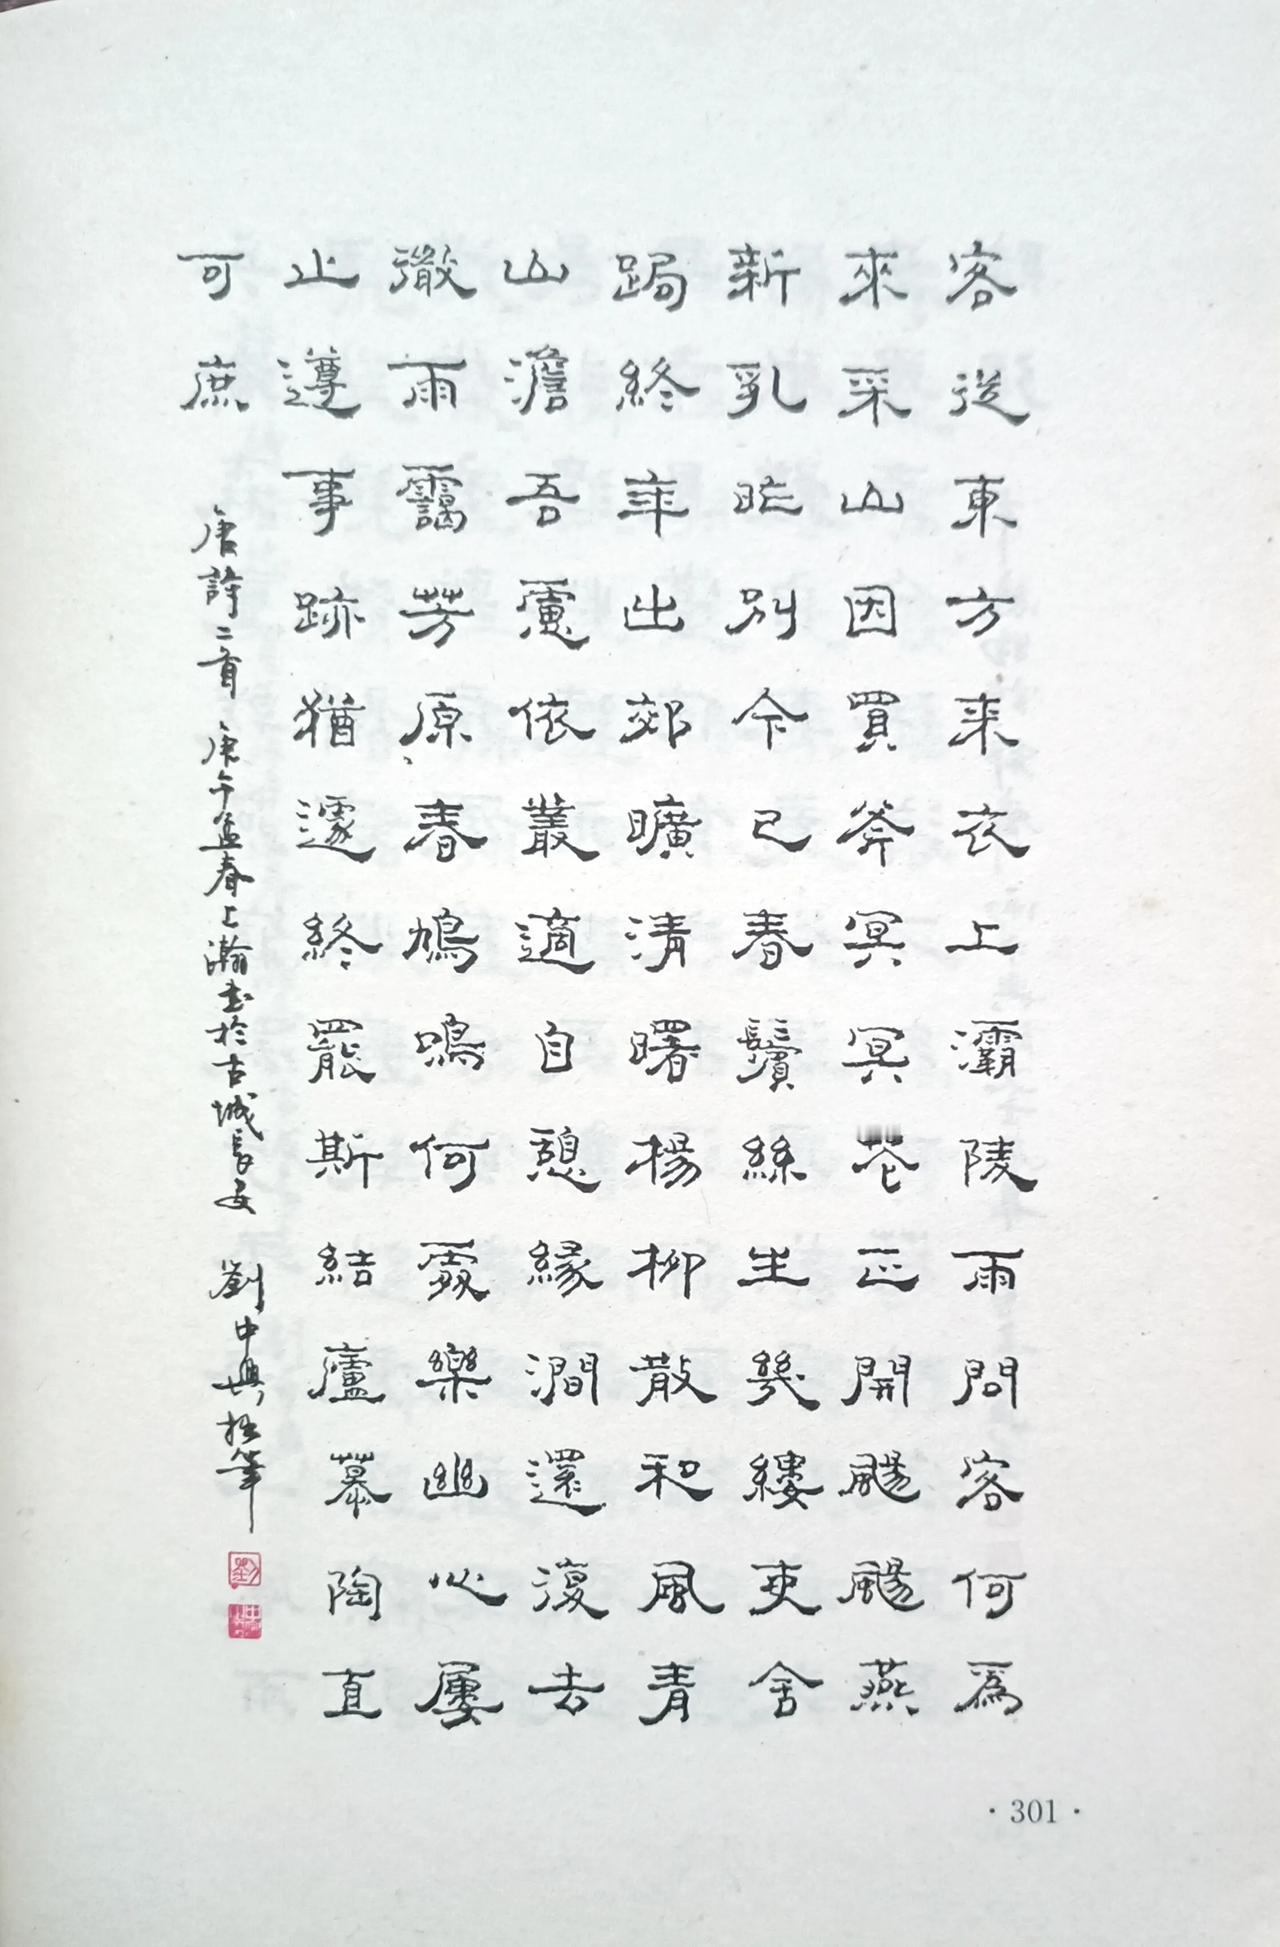 客從東方来衣上灞陵雨問客何爲
來采山因買斧冥冥花正開颺颺燕
新乳昨別今已春鬢絲生幾縷吏舍
跼終年出郊曠清曙楊柳散和風青
山澹吾慮依叢適自憩緣澗還復去
微雨靄芳原春鳩鳴何處樂幽心屢
止遵事跡猶遽終罷斯結廬慕陶直
可庶
唐詩二首 庚午孟春上瀚書於古城長安 劉中興拙筆
劉
·301·